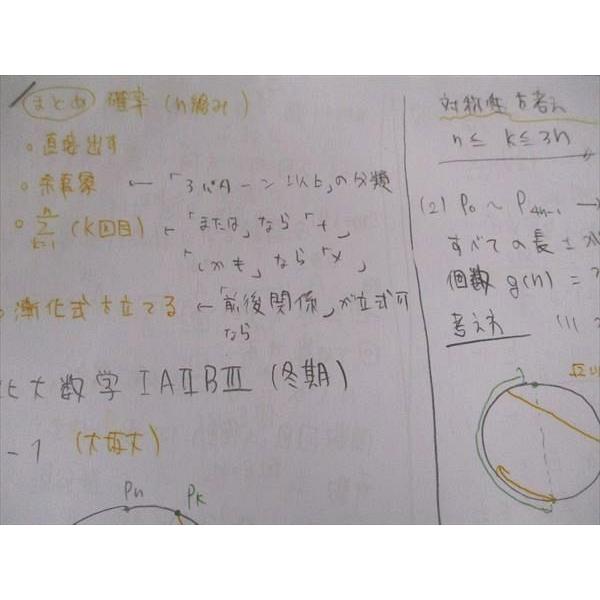 まとめ 確率(n絡み)
○直接出す
○余事象 ←「3パターン以上」の分類
○ nΣk=1 (k回目) ←「または」なら「+」
「しかも」なら「×」
○漸化式を立てる ←「前後関係」が立式可
なら
北大数学ⅠAⅡBⅢ(冬期)
-1
Pn Pk
対称性を考え
n≤ k≤3n
(2) P0 ~ P4n-1 →
すべての長さ
個数 g(n) =
考え方 (1)
√2